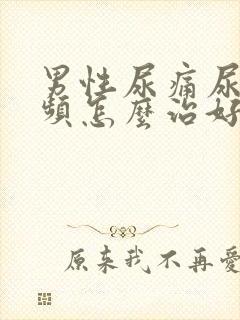 男性尿痛尿
頻怎麼治好
原来我不再愛